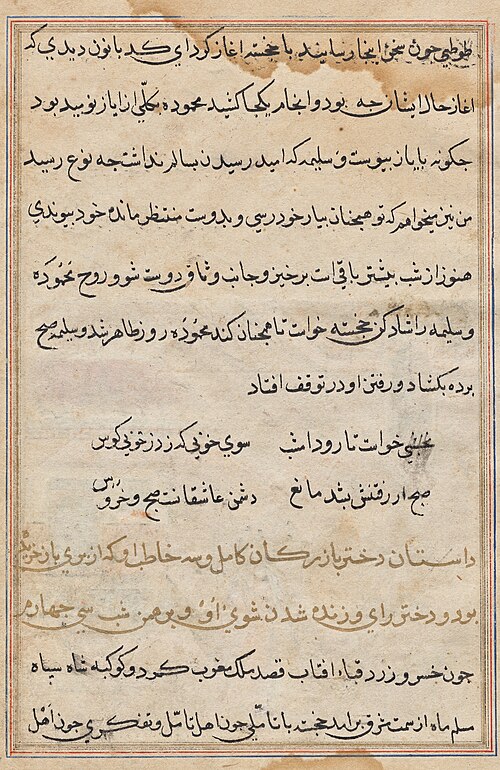 طوطی چون سخن اینجا رسانید با خجسته اغاز کرد ای کدبانون دیدی که
اغاز حال ایشان چه بود و انجام یکجا کشید محموده کلّی از ایاز نومید بود
چکونه بایاز پیوست و سلیمه که امید رسیدن بسالم نداشت چه نوع رسید
من نیز میخواهم که تو همچنان بیار خود رسی و بدوست منتظر مانده خود پیوندی
هنوز از شب بیشتر باقی است برخیز و جانب وثاق دوست شو و روح محموده
و سلیمه را شاد کن خجسته خواست تا همچنان کند محموده روز ظاهر شد و سلیمه صبح
پرده بکشاد و رفتن او در توقف افتاد
نخشبی خواست تا رود امشب سوی خوبی که زد ز خوبی کوس
صبح از رفتنش بشد مانع دشمن عاشقانست صبح و خروس
داستان دختر بازرکان کابل و سه خاطب او که از پری باز خریده
بود و دختر رای و زنده شدن شوی او و برهمن شب سی چهارم
چون خسرو زرد قباء افتاب قصد ملک مغرب کرد و کوکبه شاه سیاه
سلم ماه از سمت مشرق براید خجسته با تاملی چون اهل تامل و تفکری چون اهل